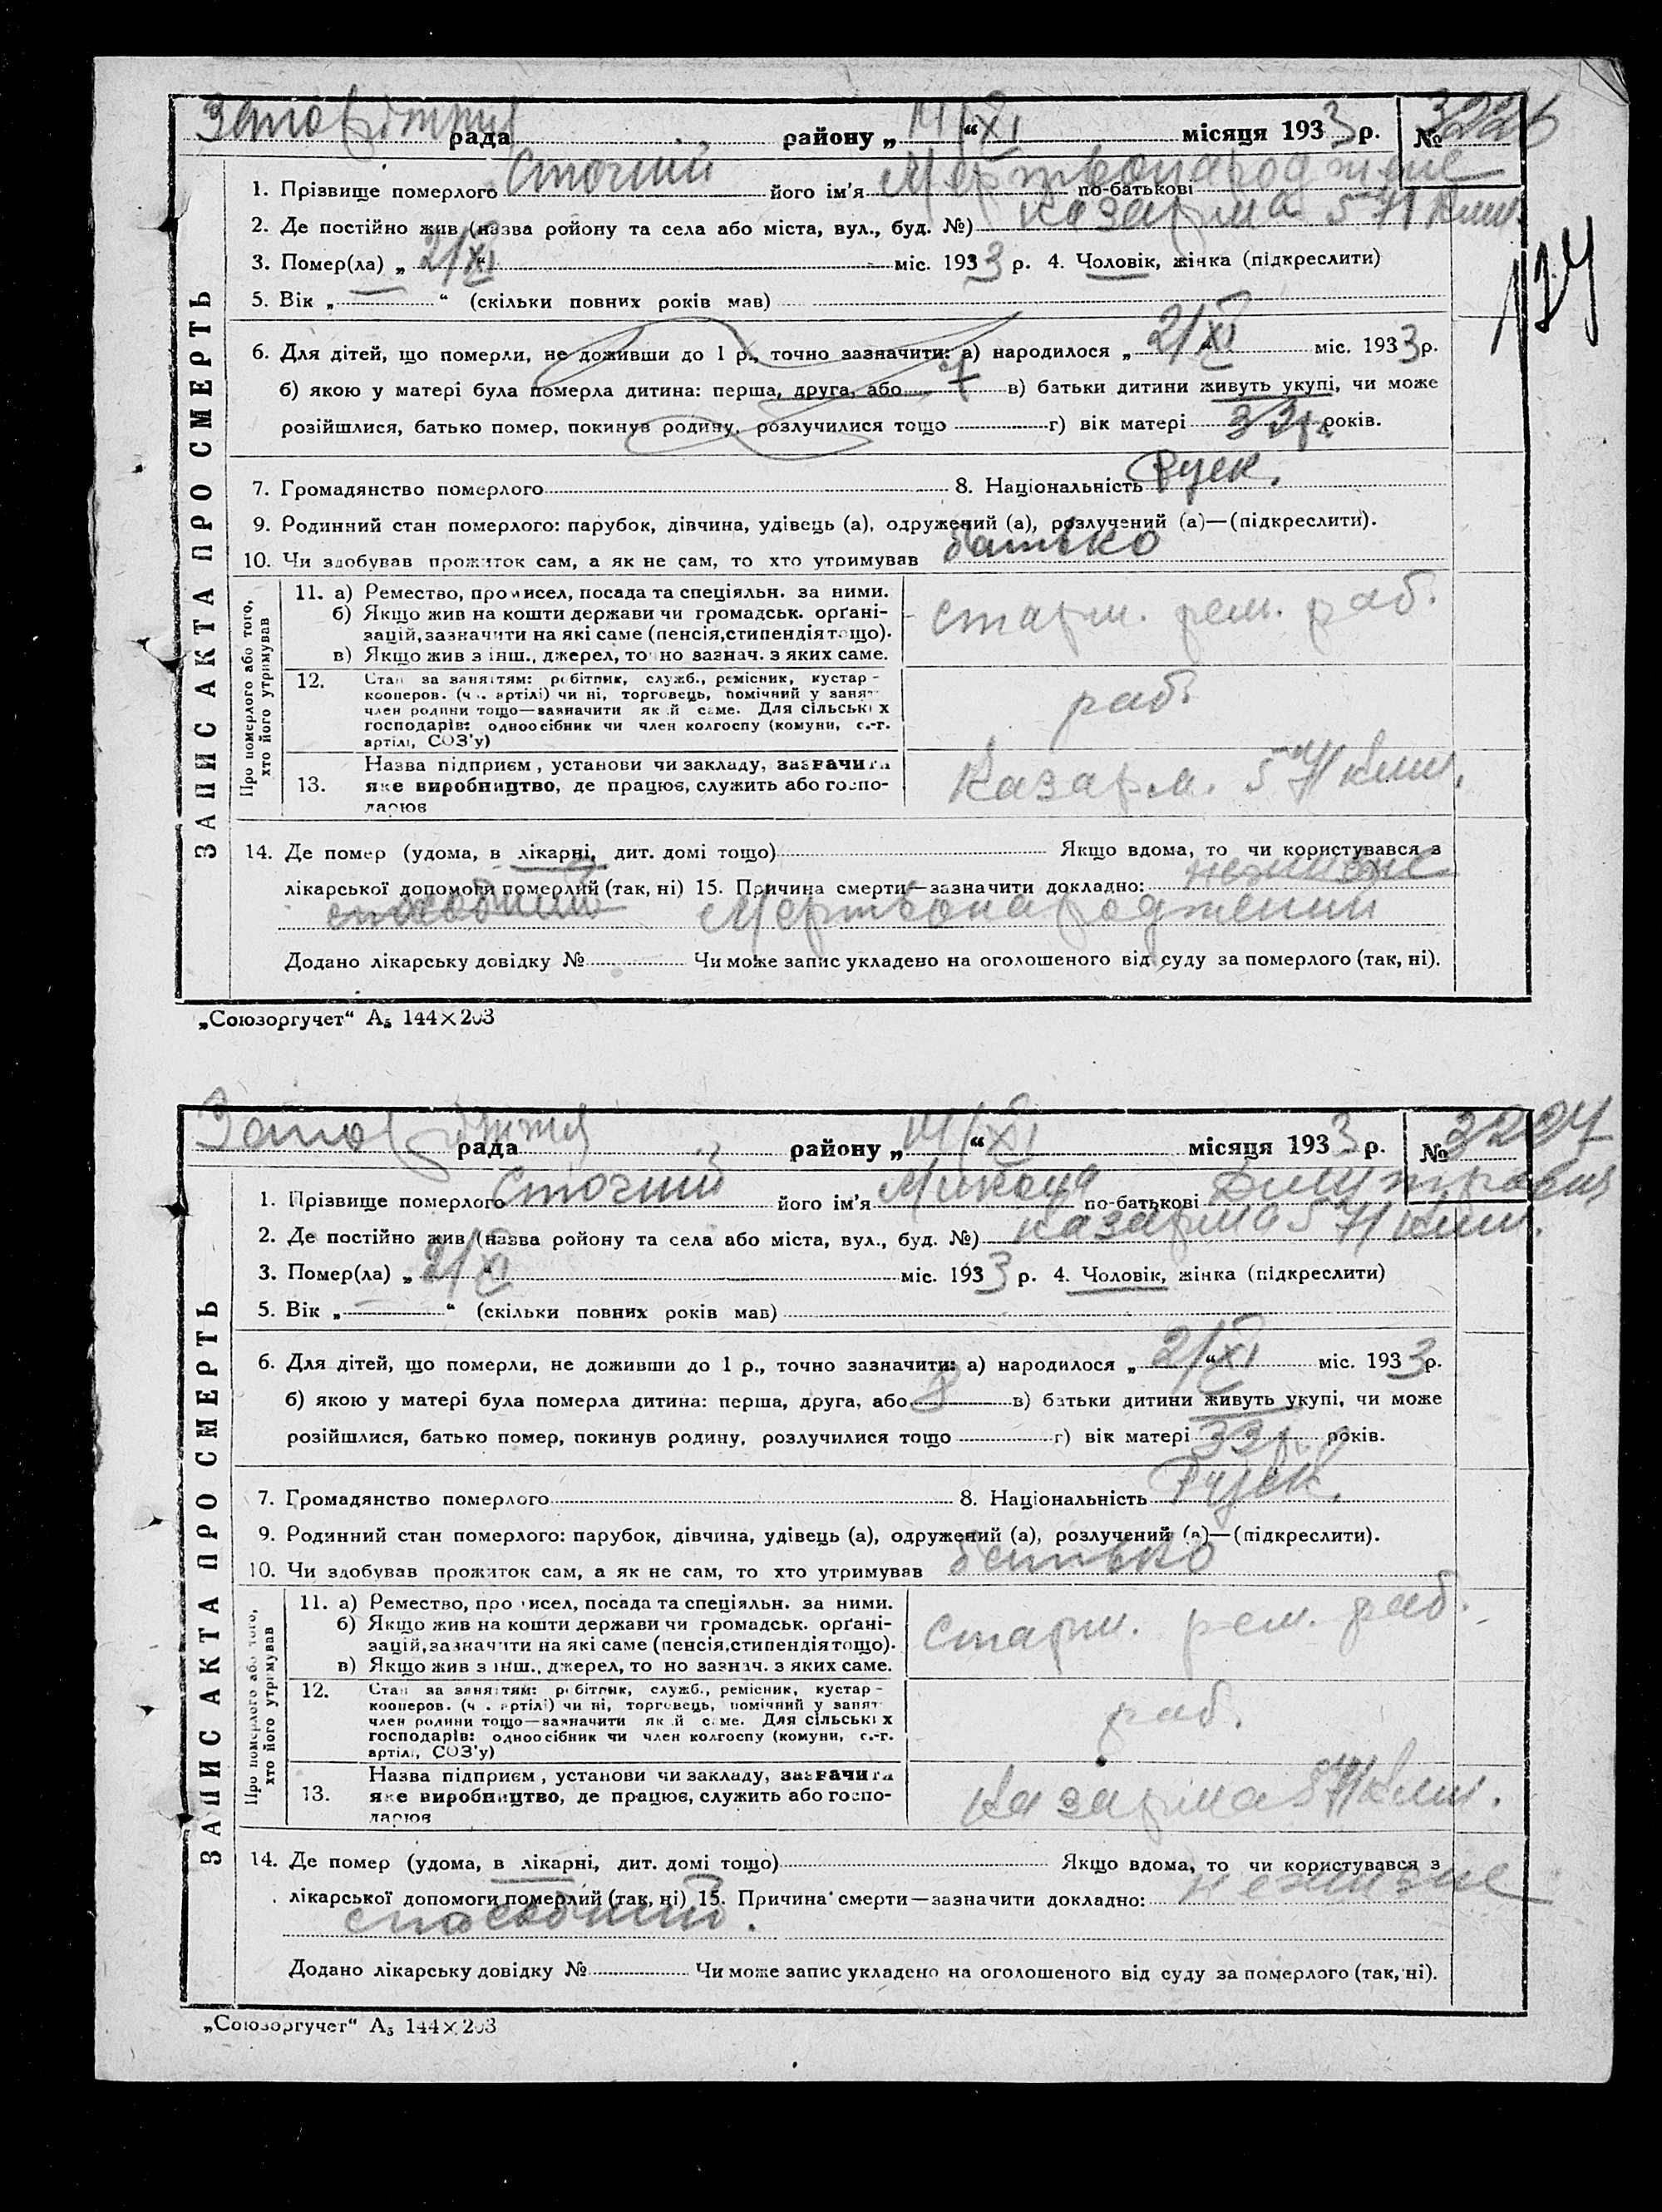 рада району „14/XI“ місяця 1933 р. № 3226
1. Прізвище померлого Сточний його ім'я Мертвонароджене по-батькові
2. Де постійно жив (назва ройону та села або міста, вул., буд. №) казарма 571 клм.
3. Помер(ла) „2/XI“ міс. 1933 р. 4. Чоловік, жінка (підкреслити)
5. Вік „ — “ (скільки повних років мав)
124
6. Для дітей, що померли, не доживши до 1 р., точно зазначити: а) народилося „2/XI“ міс. 1933 р.
б) якою у матері була померла дитина: перша, друга, або в) батьки дитини живуть укупі, чи може
розійшлися, батько помер, покинув родину, розлучилися тощо г) вік матері 33 р. років.
7. Громадянство померлого 8. Національність Руск.
9. Родинний стан померлого: парубок, дівчина, удівець (а), одружений (а), розлучений (а)—(підкреслити).
10. Чи здобував прожиток сам, а як не сам, то хто утримував батько
ЗАПИС АКТА ПРО СМЕРТЬ
Про померлого або того, хто його утримував
11. а) Ремество, промисел, посада та спеціяльн. за ними.
б) Якщо жив на кошти держави чи громадськ. орґані-
зацій, зазначити на які саме (пенсія, стипендія тощо).
в) Якщо жив з інш., джерел, точно зазнач. з яких саме.
старш. рем. раб.
12. Стан за заняттям: робітник, служб., ремісник, кустар-
кооперов. (ч. артілі) чи ні, торговець, помічний у занят
член родини тощо—зазначити який саме. Для сільських
господарів: одноосібник чи член колгоспу (комуни, с.-г.
артілі, СОЗ'у)
раб.
13. Назва підприєм, установи чи закладу, зазначити
яке виробництво, де працює, служить або госпо-
дарює
Казарм. 571 клм.
14. Де помер (удома, в лікарні, дит. домі тощо) Якщо вдома, то чи користувався з
лікарської допомоги померлий (так, ні) 15. Причина смерти—зазначити докладно: нежизне
способний Мертвонароджений
Додано лікарську довідку № Чи може запис укладено на оголошеного від суду за померлого (так, ні).
„Союзоргучет“ А5 144×203
рада району „14/XI“ місяця 1933 р. № 3227
1. Прізвище померлого Сточний його ім'я Микола по-батькові Дмитрович
2. Де постійно жив (назва ройону та села або міста, вул., буд. №) казарма 571 клм.
3. Помер(ла) „2/XI“ міс. 1933 р. 4. Чоловік, жінка (підкреслити)
5. Вік „ — “ (скільки повних років мав)
6. Для дітей, що померли, не доживши до 1 р., точно зазначити: а) народилося „2/XI“ міс. 1933 р.
б) якою у матері була померла дитина: перша, друга, або 8 в) батьки дитини живуть укупі, чи може
розійшлися, батько помер, покинув родину, розлучилися тощо г) вік матері 33 р. років.
7. Громадянство померлого 8. Національність Руск.
9. Родинний стан померлого: парубок, дівчина, удівець (а), одружений (а), розлучений (а)—(підкреслити).
10. Чи здобував прожиток сам, а як не сам, то хто утримував батько
ЗАПИС АКТА ПРО СМЕРТЬ
Про померлого або того, хто його утримував
11. а) Ремество, промисел, посада та спеціяльн. за ними.
б) Якщо жив на кошти держави чи громадськ. орґані-
зацій, зазначити на які саме (пенсія, стипендія тощо).
в) Якщо жив з інш., джерел, точно зазнач. з яких саме.
старш. рем. раб.
12. Стан за заняттям: робітник, служб., ремісник, кустар-
кооперов. (ч. артілі) чи ні, торговець, помічний у занят
член родини тощо—зазначити який саме. Для сільських
господарів: одноосібник чи член колгоспу (комуни, с.-г.
артілі, СОЗ'у)
раб.
13. Назва підприєм, установи чи закладу, зазначити
яке виробництво, де працює, служить або госпо-
дарює
Казарма 571 клм.
14. Де помер (удома, в лікарні, дит. домі тощо) Якщо вдома, то чи користувався з
лікарської допомоги померлий (так, ні) 15. Причина смерти—зазначити докладно: нежизне
способний.
Додано лікарську довідку № Чи може запис укладено на оголошеного від суду за померлого (так, ні).
„Союзоргучет“ А5 144×203